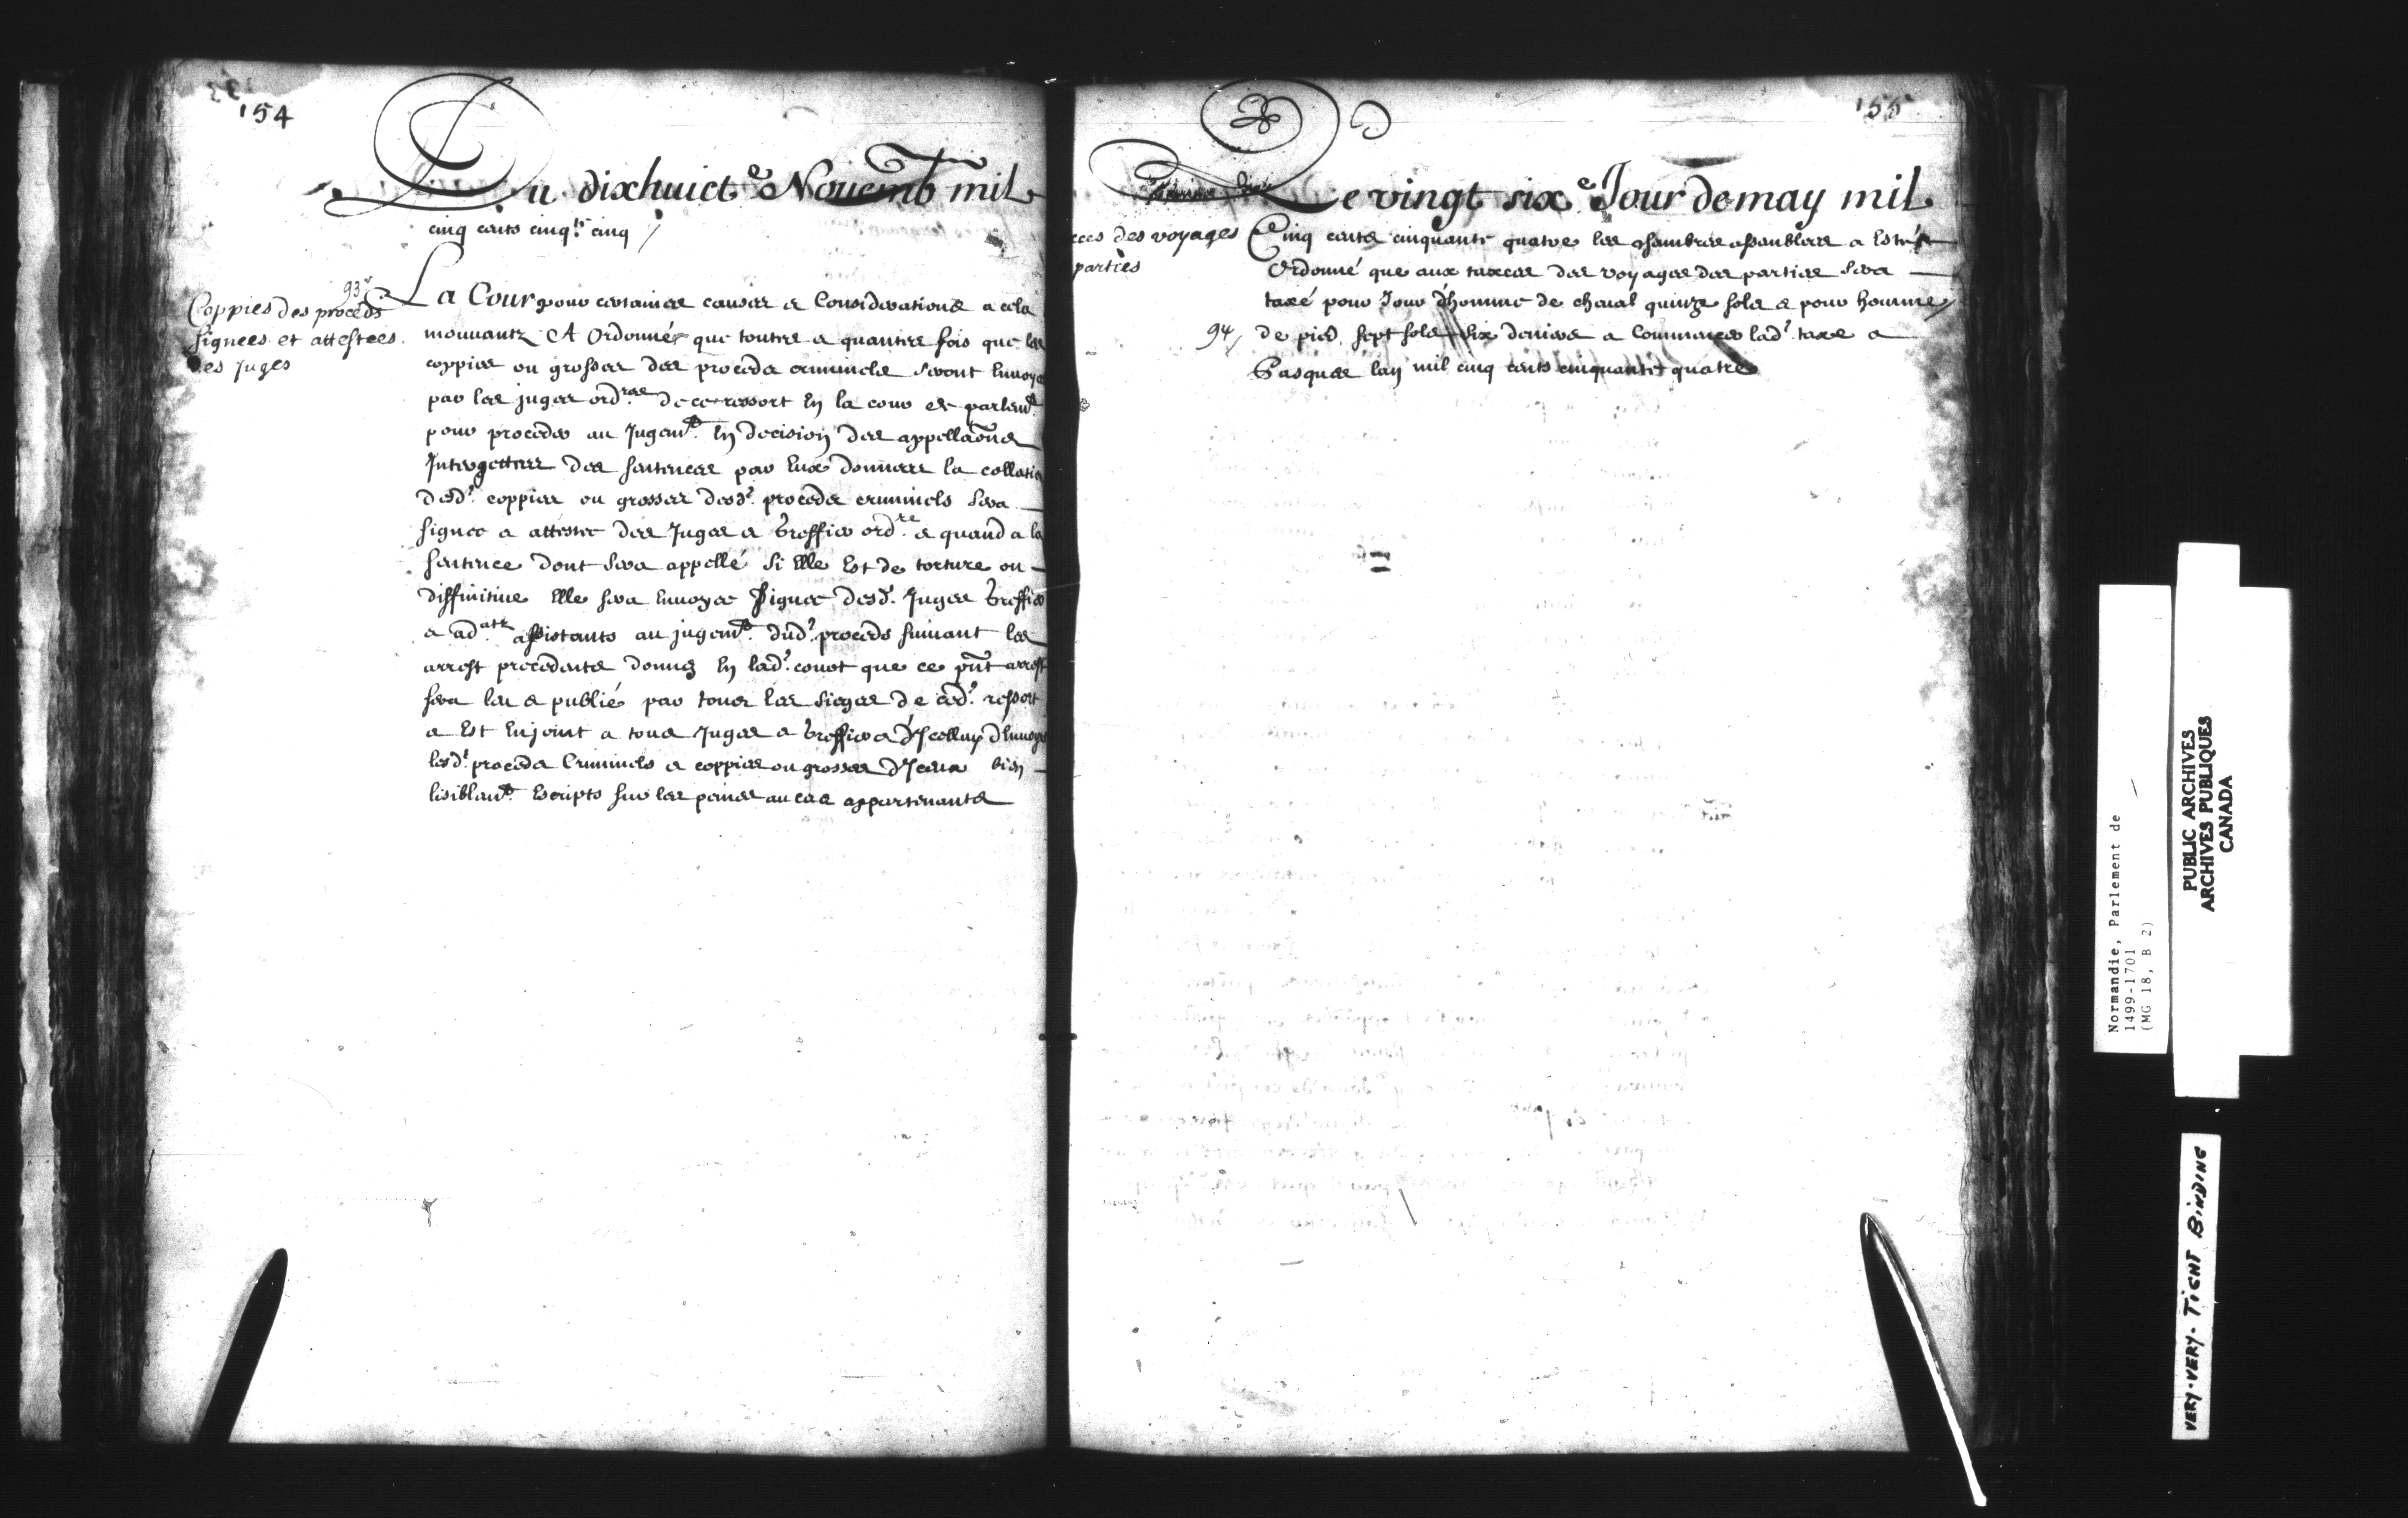 154
Du dixhuict.e Nouemb mil
cinq cents cinq.te cinq /
93
Coppies des procéds
signees et attestées
des juges
La Cour pour certaines causes & Considerations a cela
mouuantz A Ordonné que touttes & quantes fois que les
coppies ou grosses des procéds criminels seront Enuoyé
par les juges ord.res de ce ressort En la cour de parlem.t
pour procéder au Jugem.t En decision des appellaõns
Intergettees des sentences par Eux donnees la collatio
desd. coppies ou grosses desd. procéds criminels sera
signee & attestee des Juges & Greffier ord.re & quand a la
sentence dont sera appellé si Elle Est de torture ou
diffinitiue Elle sera Enuoyee signee desd. Juges Greffier
& ad.atz assistants au jugem.t dud. procéds suiuant les
arrest precedents donnez En lad. court que ce pñt arrest
sera leu & publié par tous les sieges de ced. ressort
& Est Enjoint a tous Juges & Greffiers d'Icelluy d'Enuoyer
lesd. procéds Criminels & coppies ou grosses d'Iceux bien
lisiblem.t Escripts sur les peines au cas appartenants
155
Le vingt six.e Jour de may mil
ees des voyages
parties
Cinq cents cinquante quatre les chambres assemblees a Esté
Ordonné que aux taxees des voyages des parties sera
taxé pour Jour d'homme de cheual quinze sols & pour homme
94
de pied sept sols six deniers a Commencer lad. taxe a
Pasques lan mil cinq cents cinquante quatre
Normandie, Parlement de
1499-1701
(MG 18, B 2)
PUBLIC ARCHIVES
ARCHIVES PUBLIQUES
CANADA
VERY-VERY-TIGHT BINDING